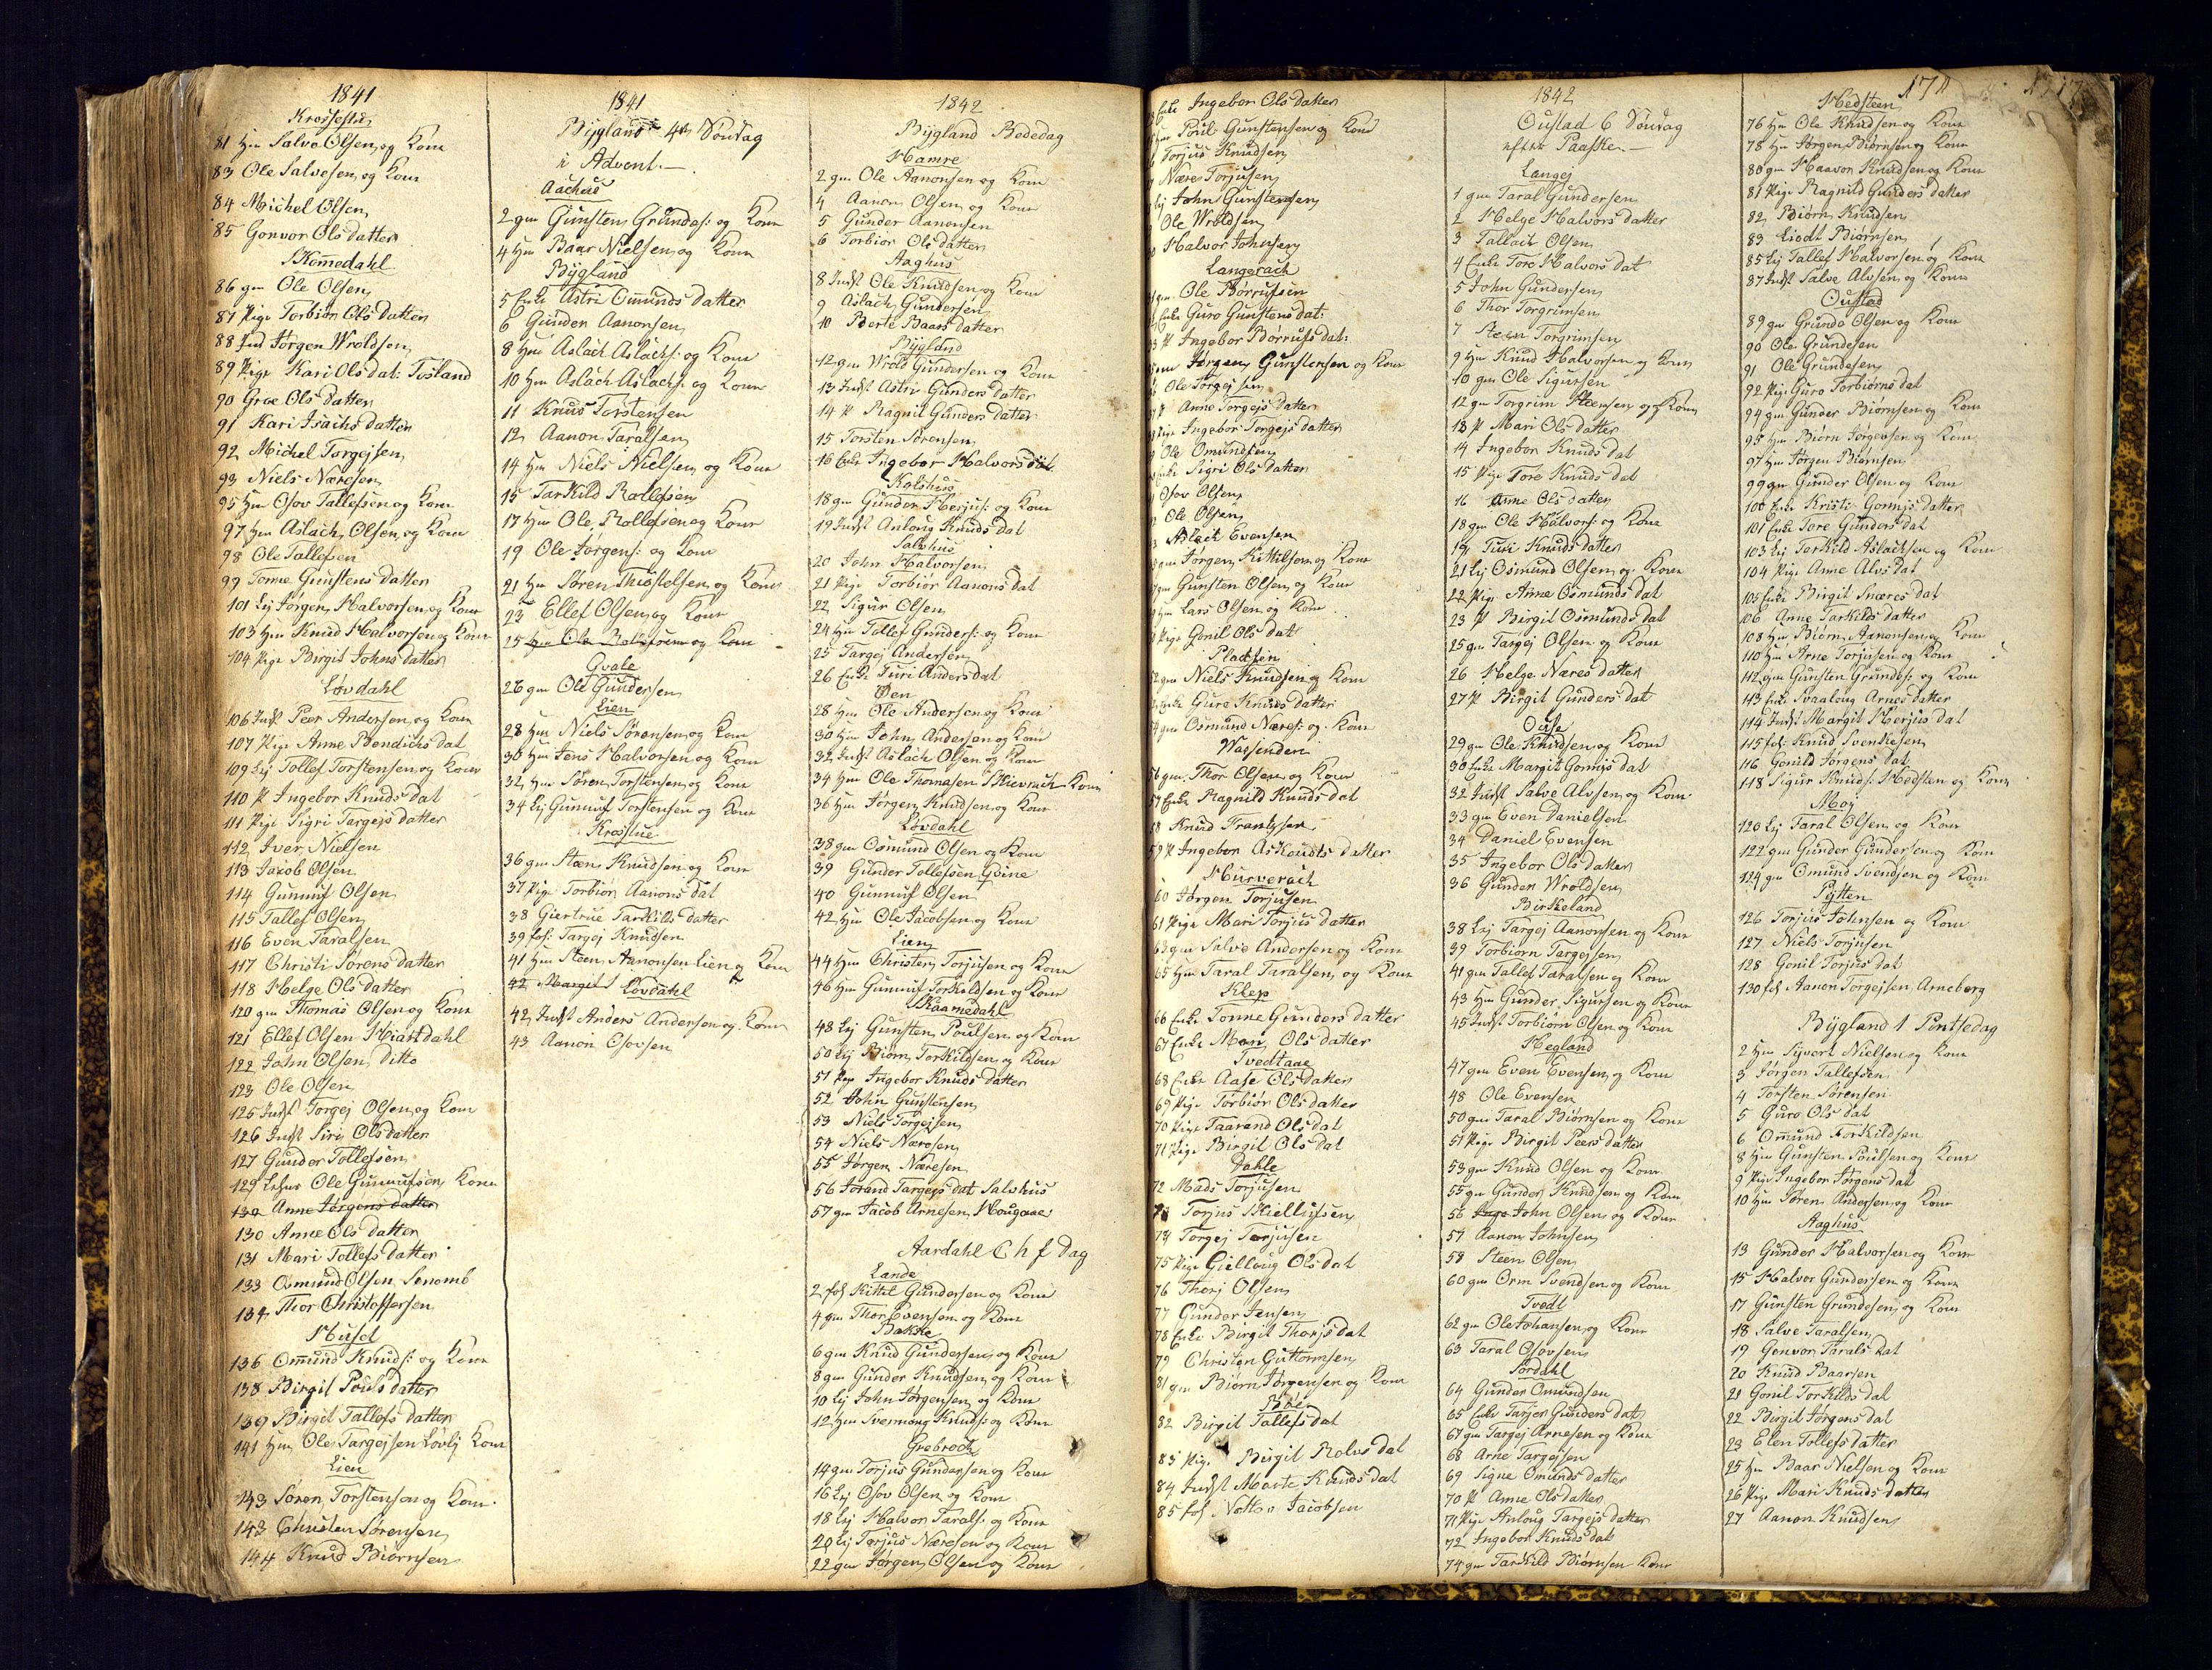 1841
81 Hm Salve Olsen og Kone
83 Ole Salvesen og Kone
84 Michel Olsen
85 Gonvor Ols datter
86 gm Ole Olsen
87 Pige Torbiør Ols datter
88 Ind Jørgen Wroldsen
89 Pige Kari Ols dat: Tosland
90 Groe Ols datter
91 Kari Isachs datter
92 Michel Torgejsen
93 Niels Næresen
95 Hm Osov Tallefsen og Kone
97 Hm Aslach Olsen og Kone
98 Ole Tallefsen
99 Tonne Gunstens datter
101 Lej Jørgen Halvorsen og Kone
103 Hm Knud Halvorsen og Kone
104 Pige Birgit Johns datter
Løvdahl
106 Indst Peer Andersen og Kone
107 Pige Anne Bendichs dat
109 Lej Tollef Torstensen og Kone
110 P Ingebor Knuds dat
111 Pige Sigri Targejs datter
112 Iver Nielsen
113 Jacob Olsen
114 Gunnuf Olsen
115 Tallef Olsen
116 Even Taralsen
117 Christi Sørens datter
118 Helge Ols datter
120 gm Thomas Olsen og Kone
121 Ellef Olsen
122 John Olsen ditto
123 Ole Olsen
125 Indst Torgej Olsen og Kone
126 Indst Siri Ols datter
127 Gunder Tollefsen
129 Ole Gunnufsen Kone
130 Anne Jørgens datter
130 Anne Ols datter
131 Mari Tollefs datter
133 Osmund Olsen
134 Thor Christoffersen
136 Omund Knuds: og Kone
138 Birgit Pouls datter
139 Birgit Tallefs datter
141 Hm Ole Targejsen Kone
Lien
143 Søren Torstensen og Kone
143 Christen Sørensen
144 Knud Biørnsen
1841
Bygland 4de Søndag
i Advent.
Aachus
2 gm Gunsten Grundes: og Kone
4 Hm Baar Nielsen og Kone
Bygland
5 Enke Astri Omunds datter
6 Gunder Aanonsen
8 Hm Aslach Aslachs: og Kone
10 Hm Aslach Aslachs: og Kone
11 Knud Torstensen
12 Aanon Taralsen
14 Hm Niels Nielsen og Kone
15 Tarkild Rollefsen
17 Hm Ole Rollefsen og Kone
19 Ole Jørgens: og Kone
21 Hm Søren Thostelsen og Kone
23 Ellef Olsen og Kone
25 Hm Ole Rollefsen og Kone
26 gm Ole Gundersen
Lien
28 Hm Niels Sørensen og Kone
30 Hm Jens Halvorsen og Kone
32 Hm Søren Torstensen og Kone
34 Lej Gunnuf Torstensen og Kone
36 gm Steen Knudsen og Kone
37 Pige Torbiør Aanons dat
38 Giertrue Tarkilds datter
39 Targej Knudsen
41 Hm Steen Aanonsen Lien og Kone
42 Margit
Løvdahl
42 Indst Anders Andersen og Kone
43 Aanon Osovsen
1842
Bygland Bededag
Hamre
2 gm Ole Aanonsen og Kone
4 Aanon Olsen og Kone
5 Gunder Aanonsen
6 Torbiør Ols datter
Aaghus
8 Indst Ole Knudsen og Kone
9 Aslach Gundersen
10 Berte Baars datter
Bygland
12 gm Wrold Gundersen og Kone
13 Indst Astri Gunders datter
14 P Ragnil Gunders datter
15 Torsten Sørensen
16 Enke Ingebor Halvors dat
18 gm Gunder Herjus: og Kone
19 Indst Anloug Knuds dat
Salvhus
20 John Halvorsen
21 Pige Torbiør Aanons dat
22 Sigur Olsen
24 Hm Tollef Gunders: og Kone
25 Targej Andersen
26 Enke Turi Anders dat
Øen
28 Hm Ole Andersen og Kone
30 Hm John Andersen og Kone
32 Indst Aslach Olsen og Kone
34 Hm Ole Thomasen Kone
36 Hm Jørgen Knudsen og Kone
Løvdahl
38 gm Osmund Olsen og Kone
39 Gunder Tollefsen
40 Gunnuf Olsen
42 Hm Ole Jacobsen og Kone
Lien
44 Hm Christen Torjusen og Kone
46 Hm Gunnuf Torkildsen og Kone
48 Lej Gunsten Poulsen og Kone
50 Lej Biørn Torkildsen og Kone
51 Pige Ingebor Knuds datter
52 John Gunstensen
53 Niels Torgejsen
54 Niels Næresen
55 Jørgen Næresen
56 Jorand Targejs dat Salvhus
57 gm Jacob Arnesen
Aardahl Ch f Dag
Lande
2 fol Kittil Gundersen og Kone
4 gm Thor Evensen og Kone
Bakke
6 gm Knud Gundersen og Kone
8 gm Gunder Knudsen og Kone
10 Lej John Jørgensen og Kone
12 Hm Svennung Knuds: og Kone
Grebrock
14 gm Torjus Gundersen og Kone
16 Lej Osov Olsen og Kone
18 Lej Halvor Tarals: og Kone
20 Lej Torjus Næresen og Kone
22 gm Jørgen Olsen og Kone
Enke Ingebor Ols datter
Poul Gunstensen og Kone
Torjus Knudsen
Næres Torjusen
John Gunstensen
Ole Wroldsen
Halvor Johnsen
Langerach
gm Ole Børrufsen
Enke Guro Gunstens dat:
P Ingebor Børrufs dat:
Jørgen Gunstensen og Kone
Ole Torgejsen
P Anne Torgejs datter
Pige Ingebor Torgejs datter
Ole Omundsen
Enke Sigri Ols datter
Osov Olsen
Ole Olsen
Aslach Evensen
gm Jørgen Kittilsen og Kone
gm Gunsten Olsen og Kone
Hm Lars Olsen og Kone
Pige Gonil Ols dat
Pladsen
52 gm Niels Knudsen og Kone
Enke Guro Knuds datter
gm Osmund Næres: og Kone
Wassenden
56 gm Thor Olsen og Kone
57 Enke Ragnild Knuds dat
58 Knud Frantzsen
59 P Ingebor Askeudts datter
60 Jørgen Torjusen
61 Pige Mari Torjus datter
63 gm Salve Andersen og Kone
65 Hm Taral Taralsen og Kone
Klep
66 Enke Tonne Gunders datter
67 Enke Mari Ols datter
Tvedtaae
68 Enke Aase Ols datter
69 Pige Torbiør Ols datter
70 Pige Taarand Ols dat
71 Pige Birgit Ols dat
Dahle
72 Mads Torjusen
73 Torjus Kiellufsen
74 Torgej Torjusen
75 Pige Gielloug Ols dat
76 Thorj Olsen
77 Gunder Jensen
78 Enke Birgit Thorjs dat
79 Christen Guttormsen
81 gm Biørn Jørgensen og Kone
Bøe
82 Birgit Tallefs dat
83 Pige Birgit Rolvs dat
84 Indst Marte Knuds dat
85 fol Jacobsen
1842
Oustad 6 Søndag
efter Paaske.
Langej
1 gm Taral Gundersen
2 Helge Halvors datter
3 Tallach Olsen
4 Enke Tore Halvors dat
5 John Gundersen
6 Thor Torgrimsen
7 Steen Torgrimsen
9 Hm Knud Halvorsen og Kone
10 gm Ole Sigursen
12 gm Torgrim Steensen og Kone
13 P Mari Ols datter
14 Ingebor Knuds dat
15 Pige Tore Knuds dat
16 Anne Ols datter
18 gm Ole Halvors: og Kone
19 Turi Knuds datter
21 Lej Osmund Olsen og Kone
22 Pige Anne Osmunds dat
23 P Birgit Osmunds dat
25 gm Targej Olsen og Kone
26 Helge Næres datter
27 P Birgit Gunders dat
Ouse
29 gm Ole Knudsen og Kone
30 Enke Margit Gonnjs dat
32 Indst Salve Alvsen og Kone
33 gm Even Danielsen
34 Daniel Evensen
35 Ingebor Ols datter
36 Gunder Wroldsen
Birkeland
38 Lej Targej Aanonsen og Kone
39 Torbiørn Targejsen
41 gm Tallef Taralsen og Kone
43 Hm Gunder Sigursen og Kone
45 Indst Torbiørn Olsen og Kone
Hegland
47 gm Even Evensen og Kone
48 Ole Evensen
50 gm Taral Biørnsen og Kone
51 Pige Birgit Peers datter
53 gm Knud Olsen og Kone
55 gm Gunder Knudsen og Kone
56 John Olsen og Kone
57 Aanon Johnsen
58 Steen Olsen
60 gm Orm Svendsen og Kone
Tvedt
62 gm Ole Johansen og Kone
63 Taral Osovsen
Sordahl
64 Gunder Omundsen
65 Enke Tarjer Gunders dat
67 gm Targej Arnesen og Kone
68 Arne Targejsen
69 Signe Omunds datter
70 P Anne Ols datter
71 Pige Anloug Targejs datter
72 Ingebor Knuds dat
74 gm Tarkild Biørnsen Kone
171
Hedsteen
76 Hm Ole Knudsen og Kone
78 Hm Jørgen Biørnsen og Kone
80 gm Haavor Knudsen og Kone
81 Pige Ragnild Gunders datter
82 Biørn Knudsen
83 Liodt Biørnsen
85 Lej Tallef Halvorsen og Kone
87 Indst Salve Alvsen og Kone
Oustad
89 gm Grunde Olsen og Kone
90 Ole Grundesen
91 Ole Grundesen
92 Pige Guro Torbiørns dat
94 gm Gunder Biørnsen og Kone
95 Hm Biørn Jørgensen og Kone
97 Hm Jørgen Biørnsen
99 gm Gunder Olsen og Kone
100 Enke Kristi Gonnjs datter
101 Enke Tore Gunders dat
103 Lej Torkild Aslachsen og Kone
104 Pige Anne Alvs dat
105 Enke Birgit Snæres dat
106 Anne Tarkilds datter
108 Hm Biørn Aanonsen og Kone
110 Hm Arne Torjusen og Kone
112 gm Gunsten Grundes: og Kone
113 Enke Svaaloug Arnes datter
114 Indst Margit Herjus dat
115 fol: Knud Svenkesen
116 Gonild Jørgens dat
118 Sigur Knuds: Hedsten og Kone
Moj
120 Lej Taral Olsen og Kone
122 gm Gunder Gundersen og Kone
124 gm Omund Svendsen og Kone
Pytten
126 Torjus Johnsen og Kone
127 Niels Torjusen
128 Gonil Torjus dat
130 fol Aanon Torgejsen Arneberg
Bygland 1 Pintsedag
2 Hm Syvert Nielsen og Kone
3 Jørgen Tallefsen
4 Torsten Sørensen
5 Guro Ols dat
6 Omund Torkildsen
8 Hm Gunsten Poulsen og Kone
9 Pige Ingebor Jørgens dat
10 Hm Søren Andersen og Kone
Aaghus
13 Gunder Halvorsen og Kone
15 Halvor Gundersen og Kone
17 Gunsten Grundesen og Kone
18 Salve Taralsen
19 Gonvor Tarals dat
20 Knud Baarsen
21 Gonil Torkilds dat
22 Birgit Jørgens dat
23 Elen Tollefs datter
25 Hm Baar Nielsen og Kone
26 Pige Mari Knuds datter
27 Aanon Knudsen